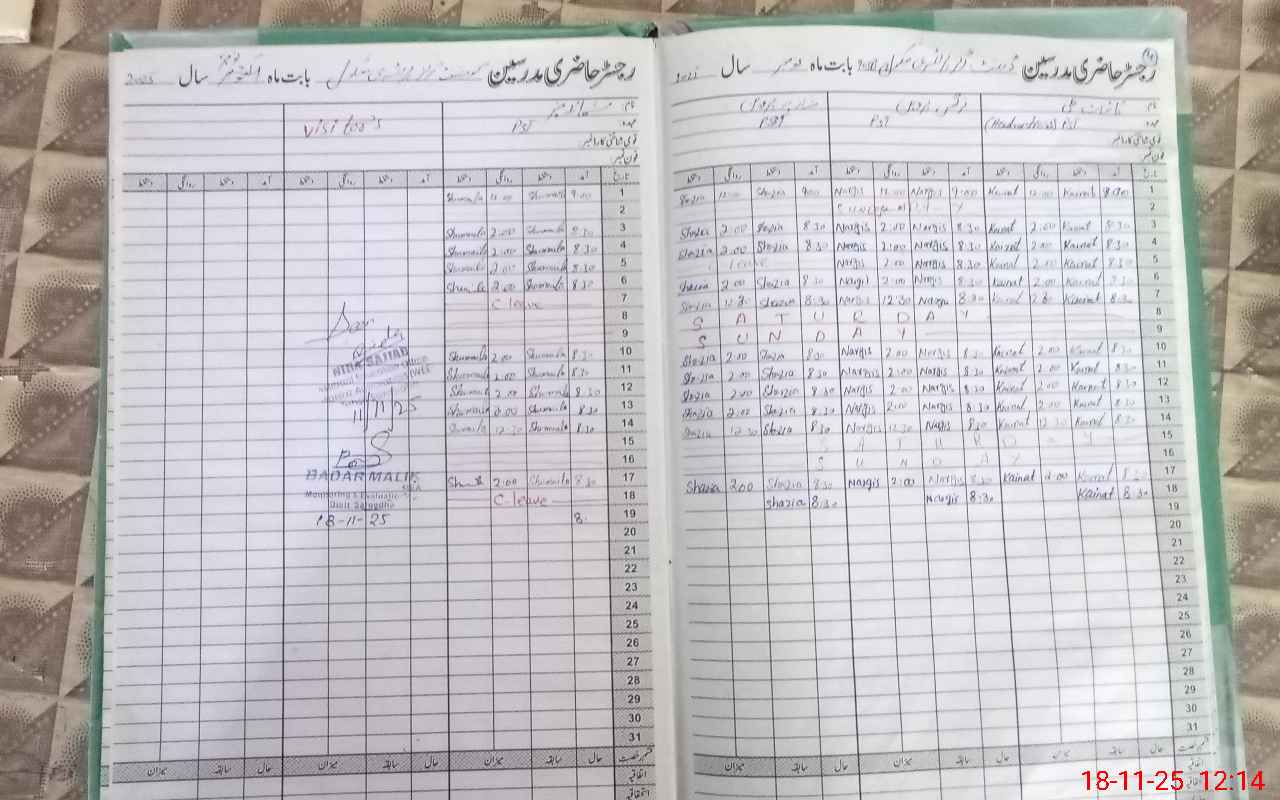 رجسٹر حاضری مدرسین
بابت ماہ
سال 2025
نام
عہدہ
قومی شناختی کارڈ نمبر
فون نمبر
(Headmistress) PST
PST
PST
تاریخ آمد دستخط روانگی دستخط آمد دستخط روانگی دستخط آمد دستخط روانگی دستخط
1 Shazia 12:00 Shazia 9:00 Nargis 12:00 Nargis 9:00 Kainat 12:00 Kainat 9:00
2 SUNDAY
3 Shazia 2:00 Shazia 8:30 Nargis 2:00 Nargis 8:30 Kainat 2:00 Kainat 8:30
4 Shazia 2:00 Shazia 8:30 Nargis 2:00 Nargis 8:30 Kainat 2:00 Kainat 8:30
5 leave Nargis 2:00 Nargis 8:30 Kainat 2:00 Kainat 8:30
6 Shazia 2:00 Shazia 8:30 Nargis 2:00 Nargis 8:30 Kainat 2:00 Kainat 8:30
7 Shazia 12:30 Shazia 8:30 Nargis 12:30 Nargis 8:30 Kainat Kainat 8:30
8 SATURDAY
9 SUNDAY
10 Shazia 2:00 Shazia 8:30 Nargis 2:00 Nargis 8:30 Kainat 2:00 Kainat 8:30
11 Shazia 2:00 Shazia 8:30 Nargis 2:00 Nargis 8:30 Kainat 2:00 Kainat 8:30
12 Shazia 2:00 Shazia 8:30 Nargis 2:00 Nargis 8:30 Kainat 2:00 Kainat 8:30
13 Shazia 2:00 Shazia 8:30 Nargis 2:00 Nargis 8:30 Kainat 2:00 Kainat 8:30
14 Shazia 12:30 Shazia 8:30 Nargis 12:30 Nargis 8:30 Kainat 12:30 Kainat 8:30
15 SATURDAY
16 SUNDAY
17 Shazia 2:00 Shazia 8:30 Nargis 2:00 Nargis 8:30 Kainat 2:00 Kainat 8:30
18 Shazia 8:30 Nargis 8:30 Kainat 8:30
19
20
21
22
23
24
25
26
27
28
29
30
31
قسم رخصت حال سابقہ میزان حال سابقہ میزان حال سابقہ میزان
اتفاقیہ
رجسٹر حاضری مدرسین
بابت ماہ
سال 2025
PST
Visitor's
آمد دستخط روانگی دستخط آمد دستخط روانگی دستخط آمد دستخط روانگی دستخط
1 Shumaila 12:00 Shumaila 9:00
2
3 Shumaila 2:00 Shumaila 8:30
4 Shumaila 2:00 Shumaila 8:30
5 Shumaila 2:00 Shumaila 8:30
6 Shumaila 2:00 Shumaila 8:30
7 C leave
8
9
10 Shumaila 2:00 Shumaila 8:30
11 Shumaila 2:00 Shumaila 8:30
12 Shumaila 2:00 Shumaila 8:30
13 Shumaila 2:00 Shumaila 8:30
14 Shumaila 12:30 Shumaila 8:30
15
16
17 2:00 Shumaila 8:30
18 C-leave
19 8:
20
21
22
23
24
25
26
27
28
29
30
31
SAJJAD
11/11/25
BADAR MALIK
Monitoring & Evaluation
Distt Sargodha
18-11-25
حال سابقہ میزان حال سابقہ میزان حال سابقہ میزان
18-11-25 12:14